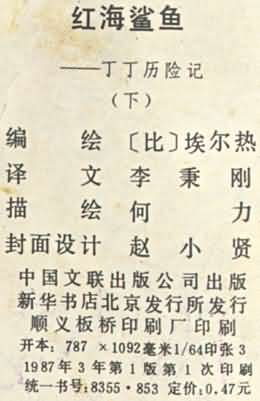 红海鲨鱼
——丁丁历险记
（下）
编 绘 〔比〕埃尔热
译 文 李秉刚
描 绘 何 力
封面设计 赵小贤
中国文联出版公司出版
新华书店北京发行所发行
顺义板桥印刷厂印刷
开本：787 ×1092毫米1/64印张3
1987年3年第1版第1次印刷
统一书号：8355·853 定价：0.47元